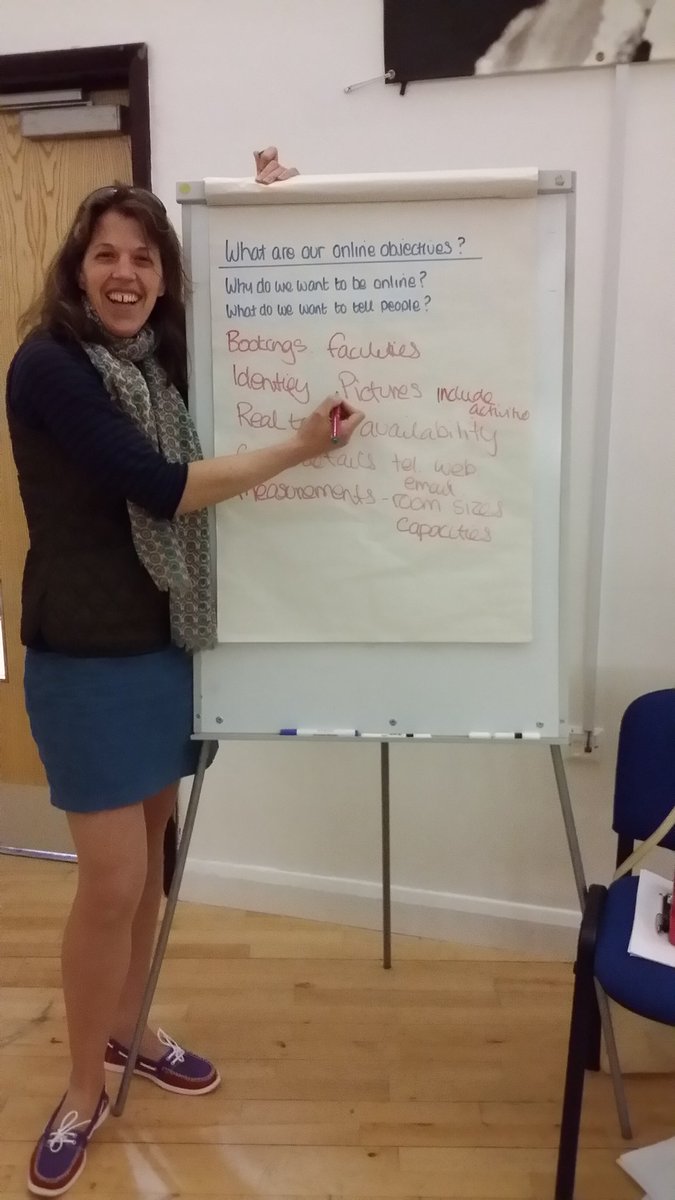 What are our online objectives?
Why do we want to be online?
What do we want to tell people?
Bookings facilities
Identify Pictures include
activities
Real availability
tel. web
email
measurements - room sizes
capacities